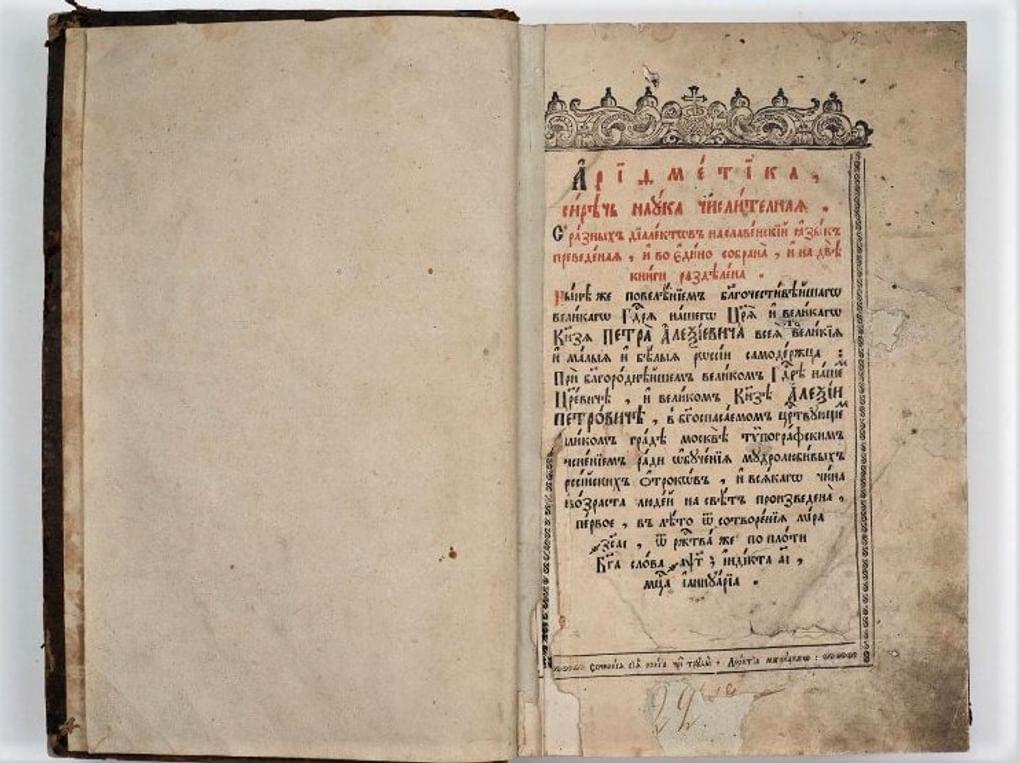 А҆рїѳме́тїка,
си́рѣчь наꙋ́ка числи́телнаѧ.
С̾ ра́зныхъ дїале́ктѡвъ на славе́нскїй ѧ҆зы́къ
преведе́наѧ, и҆ во є҆ди́но собрана̀, и҆ на двѣ̀
кни̑ги раздѣле́на.
Ны́нѣ же повелѣ́нїемъ бл҃гочести́вѣйшагѡ
вели́кагѡ Гдⷭ҇рѧ на́шегѡ Цр҃ѧ̀ и҆ вели́кагѡ
Кн҃зѧ ПЕТРА̀ А҆ЛЕѮІ́ЕВИЧА всеѧ̀ вели́кїѧ
и҆ ма́лыѧ и҆ бѣ́лыѧ рѡссі́и самоде́ржца:
Прѝ бл҃горо́днѣйшемъ вели́комъ Гдⷭ҇рѣ на́шеⷨ
Цр҃е́вичѣ, и҆ вели́комъ Кн҃зѣ А҆ЛЕѮІ́И
ПЕТРО́ВИЧѢ, в̾ бг҃оспаса́емомъ црⷭ҇твꙋющеⷨ
вели́комъ гра́дѣ москвѣ̀ тѷпогра́фскимъ
тисне́нїемъ ра́ди ѡ҆бꙋче́нїѧ мꙋдролюби́выхъ
рѡссі́йскихъ ѻ҆́трокѡвъ, и҆ всѧ́кагѡ чи́на
и҆ во́зраста люде́й на свѣ́тъ произведена̀,
пе́рвое, въ лѣ́то ѿ сотворе́нїѧ мі́ра
҂зс҃аі, ѿ рⷤтва̀ же по пло́ти
Бг҃а сло́ва ҂аѱ҃г і҆нді́кта а҃і,
мцⷭ҇а і҆аннꙋа́рїа.
Сочини́сѧ сїѧ̀ кни́га чрⷥ҇ трꙋды̀ Лео́нтїа магни́цкагѡ: